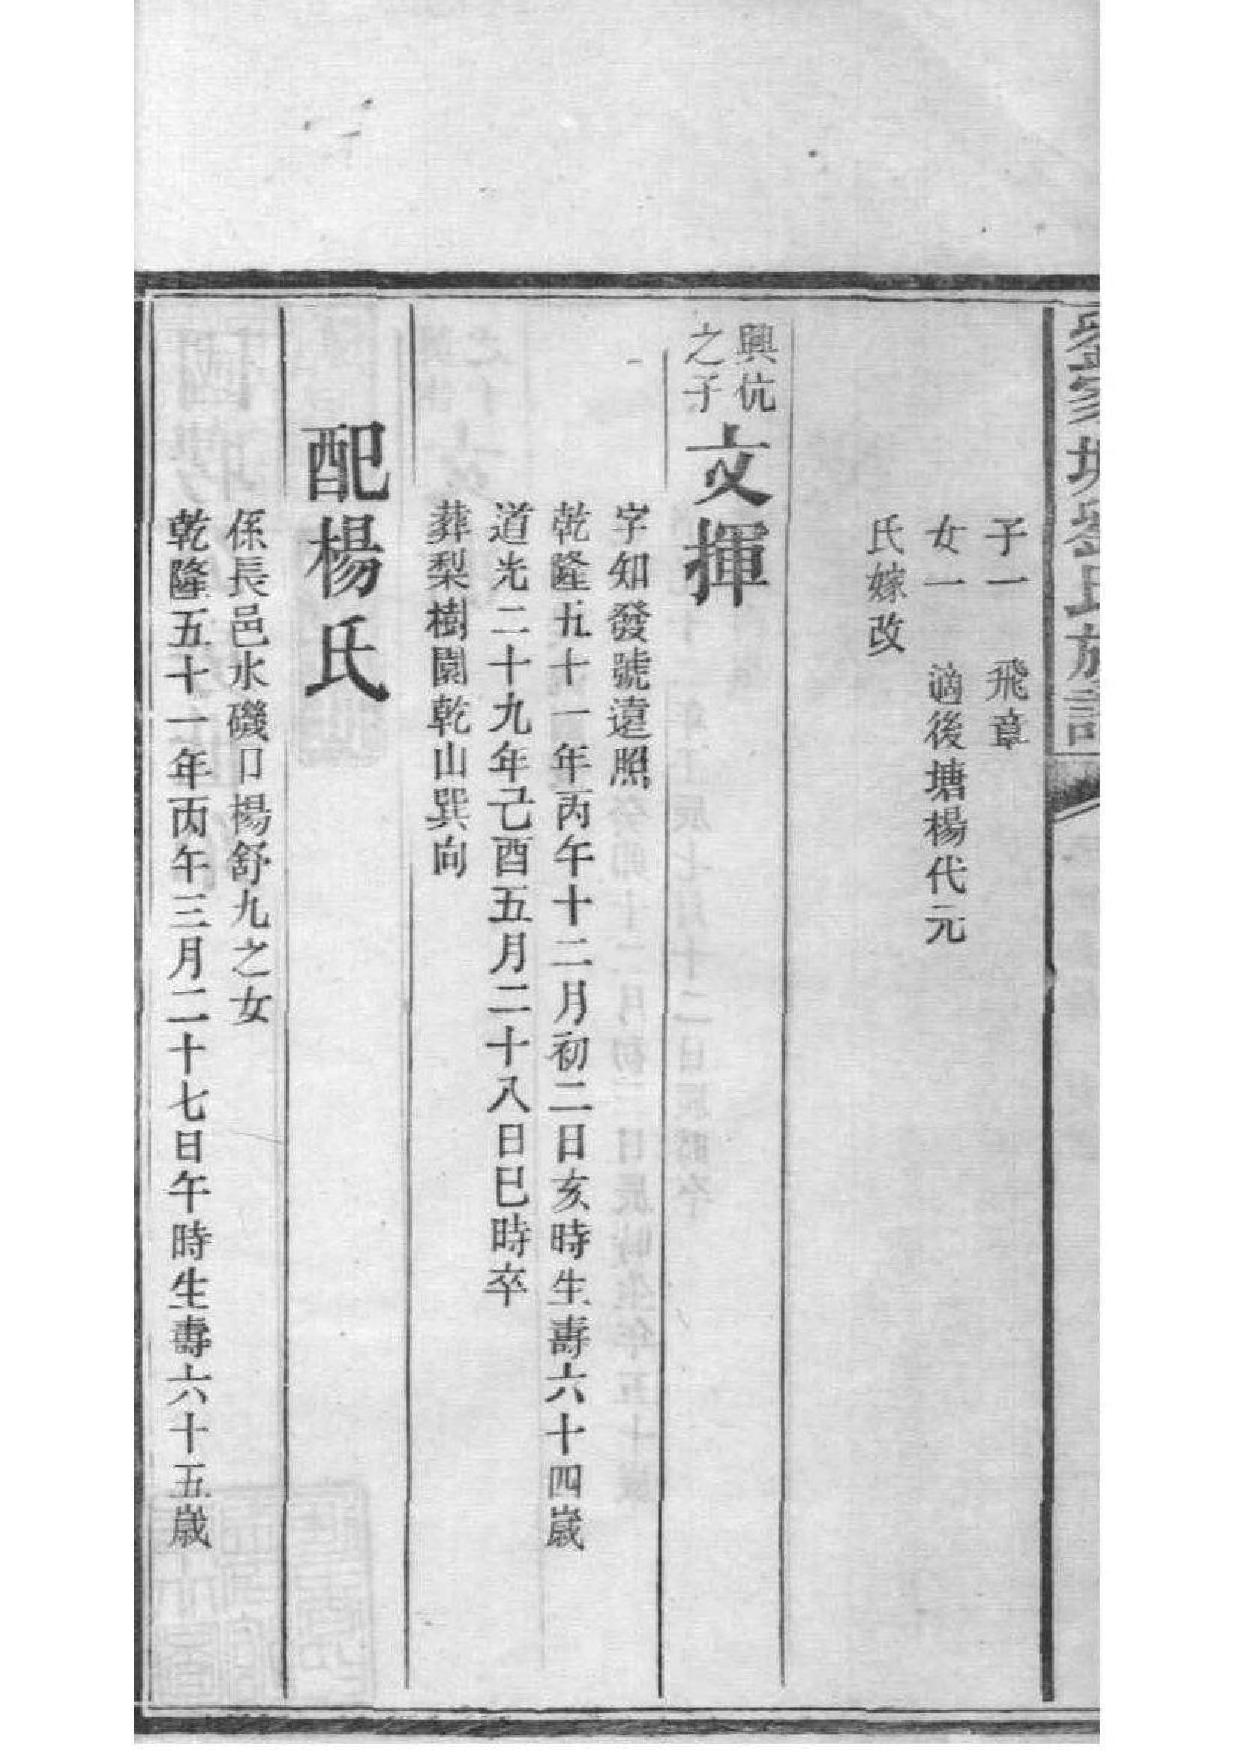 子一　飛章
女一　適後塘楊代元
氏嫁改
興伉
之子
文揮
字知發號遠照
乾隆五十一年丙午十二月初二日亥時生壽六十四歲
道光二十九年己酉五月二十八日巳時卒
葬梨樹園乾山巽向
配楊氏
係長邑水磯口楊舒九之女
乾隆五十一年丙午三月二十七日午時生壽六十五歲